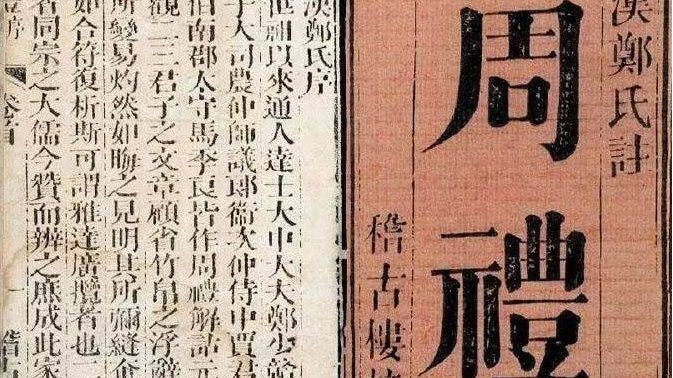 漢鄭氏註
周禮
稽古樓
漢鄭氏序
世祖以來通人達士大中大夫鄭少贛
子大司農仲師議郎衞次仲侍中賈君
伯南郡太守馬季長皆作周禮解詁元
觀二三君子之文章顧省竹帛之浮辭
所變易灼然如晦之見明其所彌縫奮
如合符復析斯可謂雅達廣攬者也
者同宗之大儒今贊而辨之庶成此家
序 卷首 一